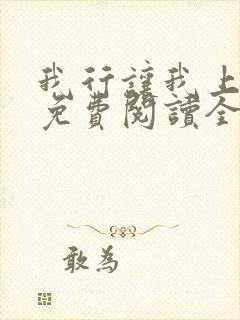 我行讓我上
免費閱讀全
敢為